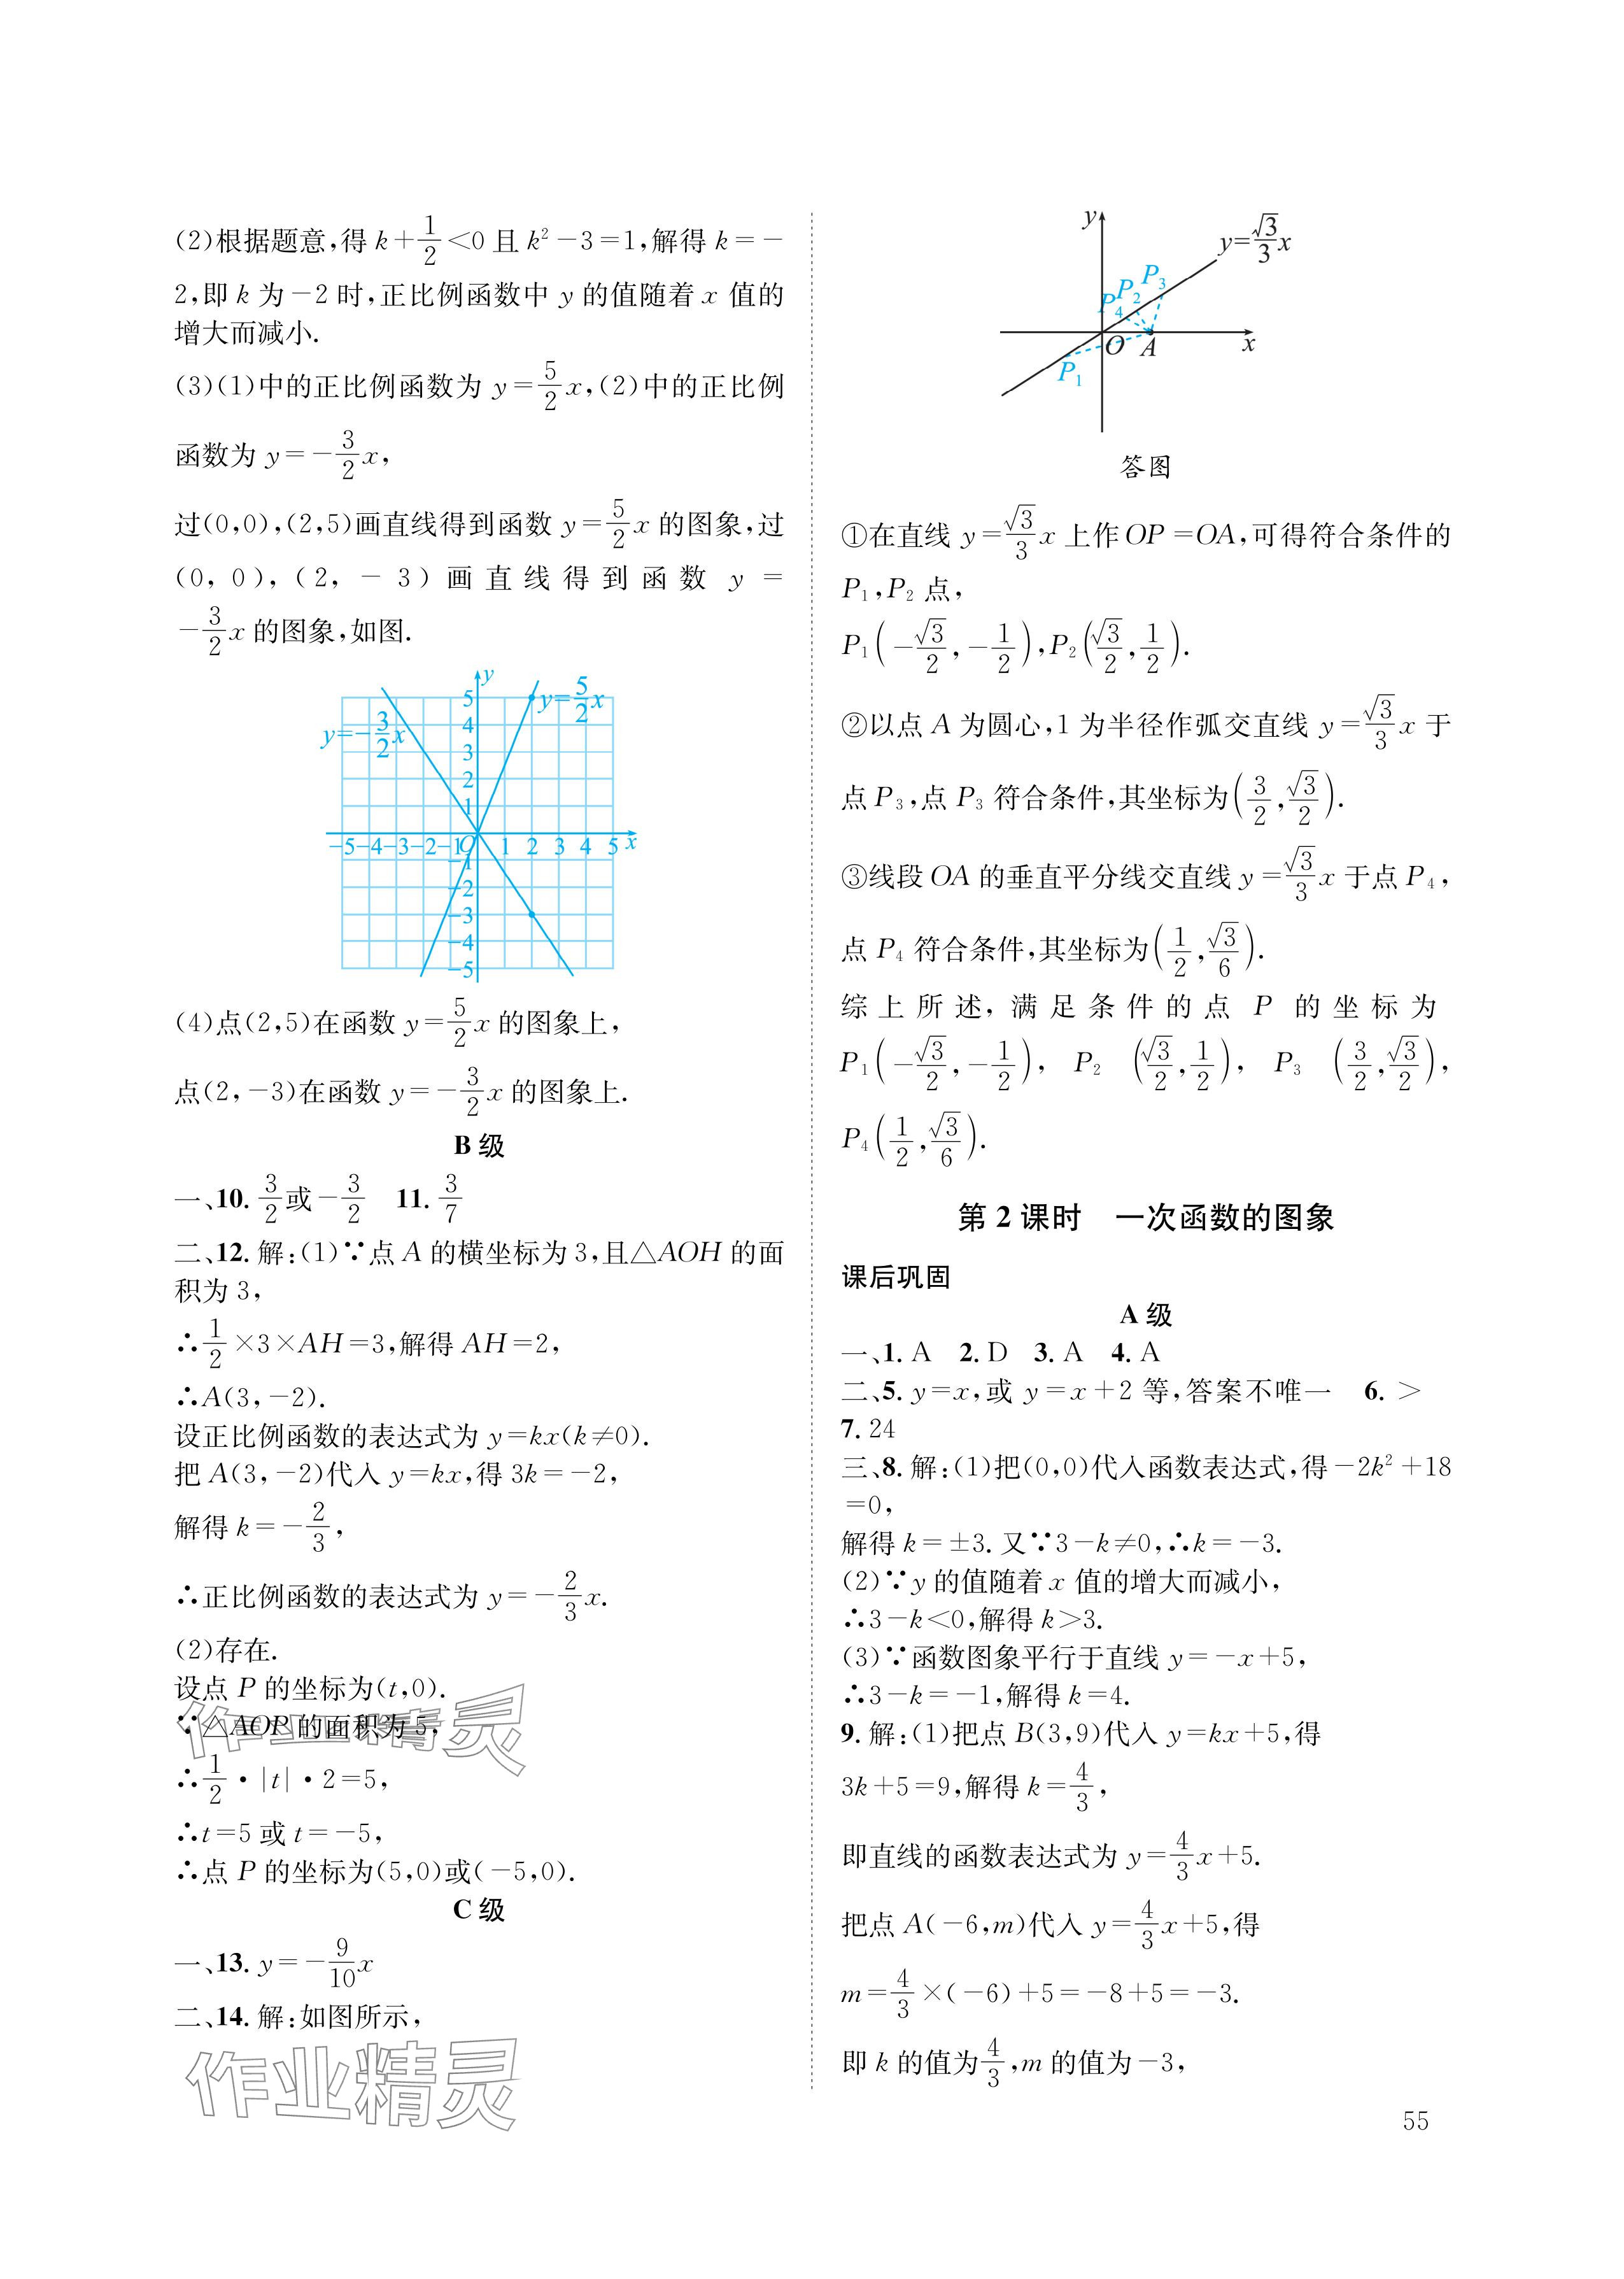 (2)根据题意,得 k+1/2<0 且 k²-3=1,解得 k=-
2,即 k 为-2 时,正比例函数中 y 的值随着 x 值的
增大而减小.
(3)(1)中的正比例函数为 y=5/2x,(2)中的正比例
函数为 y=-3/2x,
过(0,0),(2,5)画直线得到函数 y=5/2x 的图象,过
(0,0),(2,-3)画直线得到函数 y=
-3/2x 的图象,如图.
y
y=5/2x
y=-3/2x
5
4
3
2
1
-5 -4 -3 -2 -1 O 1 2 3 4 5 x
-1
-2
-3
-4
-5
(4)点(2,5)在函数 y=5/2x 的图象上,
点(2,-3)在函数 y=-3/2x 的图象上.
B 级
一、10. 3/2或-3/2 11. 3/7
二、12. 解:(1)∵点 A 的横坐标为 3,且△AOH 的面
积为 3,
∴1/2×3×AH=3,解得 AH=2,
∴A(3,-2).
设正比例函数的表达式为 y=kx(k≠0).
把 A(3,-2)代入 y=kx,得 3k=-2,
解得 k=-2/3,
∴正比例函数的表达式为 y=-2/3x.
(2)存在.
设点 P 的坐标为(t,0).
∵△AOP 的面积为 5,
∴1/2·|t|·2=5,
∴t=5 或 t=-5,
∴点 P 的坐标为(5,0)或(-5,0).
C 级
一、13. y=-9/10x
二、14. 解:如图所示,
作业精灵
作业精灵
y
y=√3/3x
P₃
P₂
P₄
O A x
P₁
答图
①在直线 y=√3/3x 上作 OP=OA,可得符合条件的
P₁,P₂ 点,
P₁(-√3/2,-1/2),P₂(√3/2,1/2).
②以点 A 为圆心,1 为半径作弧交直线 y=√3/3x 于
点 P₃,点 P₃ 符合条件,其坐标为(3/2,√3/2).
③线段 OA 的垂直平分线交直线 y=√3/3x 于点 P₄,
点 P₄ 符合条件,其坐标为(1/2,√3/6).
综上所述,满足条件的点 P 的坐标为
P₁(-√3/2,-1/2), P₂(√3/2,1/2), P₃(3/2,√3/2),
P₄(1/2,√3/6).
第 2 课时 一次函数的图象
课后巩固
A 级
一、1. A 2. D 3. A 4. A
二、5. y=x,或 y=x+2 等,答案不唯一 6. >
7. 24
三、8. 解:(1)把(0,0)代入函数表达式,得-2k²+18
=0,
解得 k=±3. 又∵3-k≠0,∴k=-3.
(2)∵y 的值随着 x 值的增大而减小,
∴3-k<0,解得 k>3.
(3)∵函数图象平行于直线 y=-x+5,
∴3-k=-1,解得 k=4.
9. 解:(1)把点 B(3,9)代入 y=kx+5,得
3k+5=9,解得 k=4/3,
即直线的函数表达式为 y=4/3x+5.
把点 A(-6,m)代入 y=4/3x+5,得
m=4/3×(-6)+5=-8+5=-3.
即 k 的值为4/3,m 的值为-3,
55